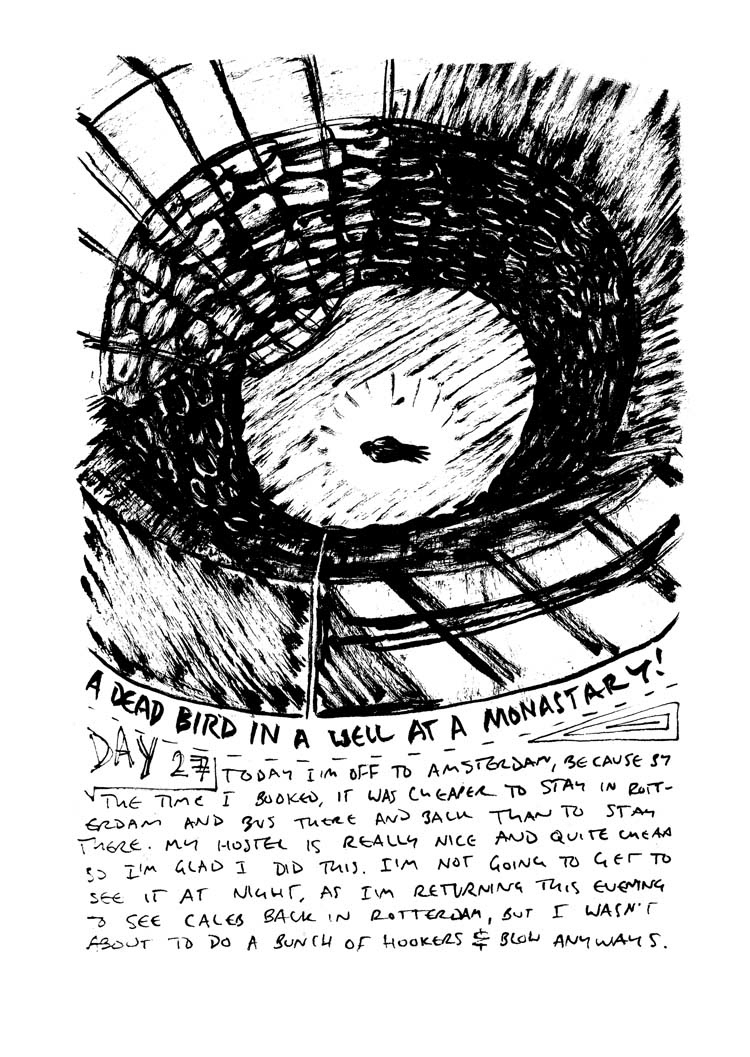 A DEAD BIRD IN A WELL AT A MONASTARY!
DAY 27
TODAY I'M OFF TO AMSTERDAM, BECAUSE BY
THE TIME I BOOKED, IT WAS CHEAPER TO STAY IN ROTT-
ERDAM AND BUS THERE AND BACK THAN TO STAY
THERE. MY HOSTEL IS REALLY NICE AND QUITE CHEAP
SO I'M GLAD I DID THIS. I'M NOT GOING TO GET TO
SEE IT AT NIGHT, AS I'M RETURNING THIS EVENING
TO SEE CALEB BACK IN ROTTERDAM, BUT I WASN'T
ABOUT TO DO A BUNCH OF HOOKERS & BLOW ANYWAYS.